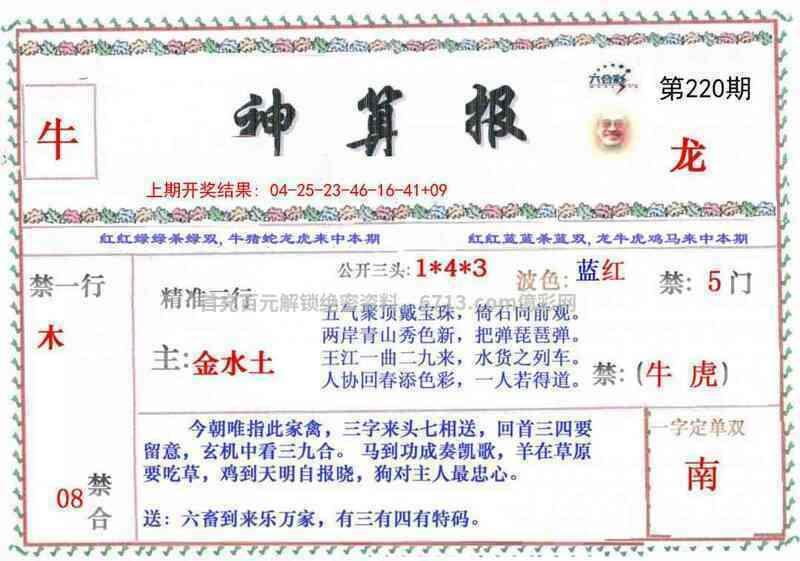 神算报
六合彩
第220期
牛
龙
上期开奖结果: 04-25-23-46-16-41+09
红红绿绿杀绿双, 牛猪蛇龙虎来中本期
红红蓝蓝杀蓝双, 龙牛虎鸡马来中本期
禁一行
木
08
禁合
精准二行
主:金水土
公开三头: 1*4*3
波色: 蓝红
禁: 5门
五气聚顶戴宝珠, 倚石向前观。
两岸青山秀色新, 把弹琵琶弹。
王江一曲二九来, 水货之列车。
人协回春添色彩, 一人若得道。
禁: (牛 虎)
今朝唯指此家禽, 三字来头七相送, 回首三四要
留意, 玄机中看三九合。 马到功成奏凯歌, 羊在草原
要吃草, 鸡到天明自报晓, 狗对主人最忠心。
送: 六畜到来乐万家, 有三有四有特码。
一字定单双
南